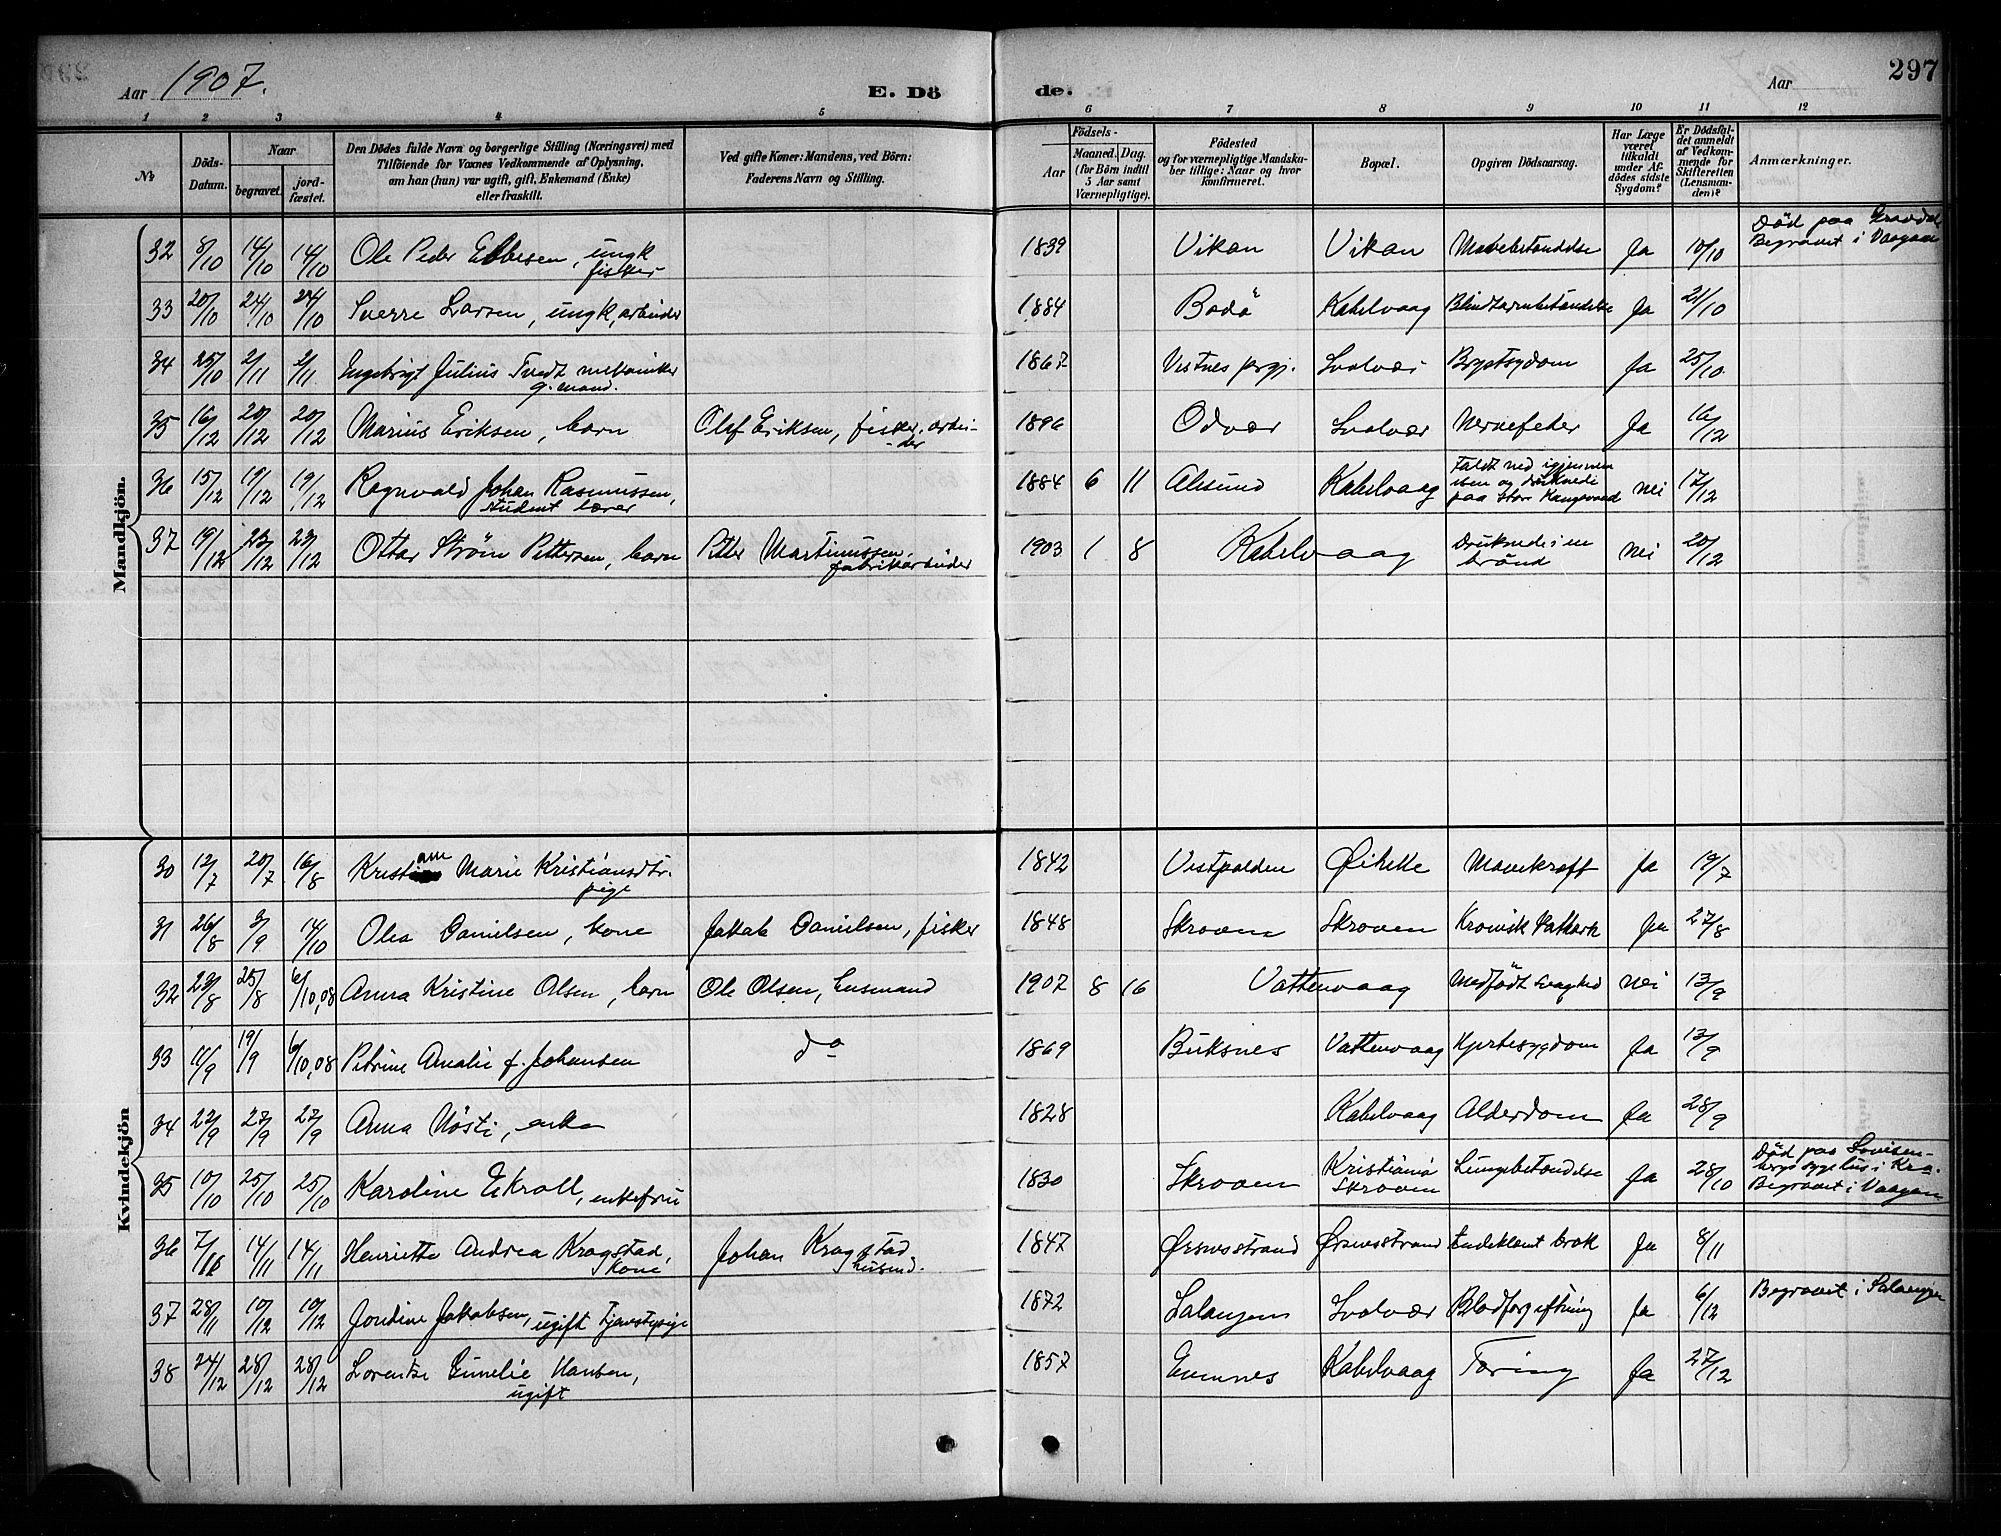 Aar 1907.
E. Döde.
Aar
297
1 2 3 4 5 6 7 8 9 10 11 12
No
Döds-Datum.
Naar
begravet.
jordfæstet.
Den Dödes fulde Navn og borgerlige Stilling (Næringsvei) med
Tilföiende for Voxnes Vedkommende af Oplysning,
om han (hun) var ugift, gift, Enkemand (Enke)
eller fraskilt.
Ved gifte Koner: Mandens, ved Börn:
Faderens Navn og Stilling.
Födsels-
Aar
Maaned. Dag.
(for Börn indtil
5 Aar samt
Værnepligtige).
Födested
og for værnepligtige Mandska-
ber tillige: Naar og hvor
konfirmeret.
Bopæl.
Opgiven Dödsaarsag.
Har Læge
været
tilkaldt
under Af-
dödes sidste
Sygdom?
Er Dödsfal-
det anmeldt
af Vedkom-
mende for
Skifteretten
(Lensman-
den)?
Anmærkninger.
Mandkjön.
32 8/10 14/10 14/10 Ole Peder Ebbesen, ungk fisker 1839 Vikan Vikan Mavebetændelse Ja 10/10 Död paa Gravdal Begravet i Vaagan
33 20/10 24/10 24/10 Sverre Larsen, ungk, arbeider 1884 Bodö Kabelvaag Blindtarmbetændelse Ja 21/10
34 25/10 2/11 2/11 Ingebrigt Julius Tvedt mekaniker g. mand. 1867 Vestnes prgj. Svolvær Brystsygdom Ja 25/10
35 16/12 20/12 20/12 Marius Eriksen, barn Olaf Eriksen, fisker, arbeider 1896 Odvær Svolvær Nervefeber Ja 16/12
36 15/12 19/12 19/12 Ragnvald Johan Rasmussen, student lærer 1884 6 11 Alesund Kabelvaag Faldt ned igjennem isen og druknede paa Store Kongsvand nei 17/12
37 19/12 23/12 23/12 Ottar Strøm Pettersen, barn Petter Martinussen, fabrikarbeider 1903 1 8 Kabelvaag Druknede i en brönd Nei 20/12
Kvindekjön
30 12/7 20/7 16/8 Kristiane Marie Kristiansdtr. pige 1842 Vestpolden Øihelle Mavekræft Ja 19/7
31 26/8 3/9 14/10 Olea Danielsen, kone Jakob Danielsen, fisker 1848 Skroven Skroven Kronisk Katharh Ja 27/8
32 23/8 25/8 6/10,08 Anna Kristine Olsen, barn Ole Olsen, Husmand 1907 8 16 Vattervaag Medfödt Svaghed Nei 13/9
33 11/9 19/9 6/10,08 Petrine Amalie f. Johansen do 1869 Buksnes Vattervaag Hjertesygdom Ja 13/9
34 22/9 27/9 27/9 Anna Nösti, enke 1828 Kabelvaag Alderdom Ja 28/9
35 10/10 25/10 25/10 Karoline Ekroll, enkefru 1830 Skroven Kristiania Skroven Lungebetændelse Ja 28/10 Död paa Lovisenbergs sygehus i Kra. Begravet i Vaagan
36 7/11 14/11 14/11 Henriette Andrea Kragstad, kone Johan Kragstad husmd. 1847 Ørsnesstrand Ørsnesstrand Indeklemt brok Ja 8/11
37 28/11 10/12 10/12 Jordine Jakobsen, ugift tjenstepige 1872 Salangen Svolvær Blodforgiftning Ja 6/12 Begravet i Salangen
38 24/12 28/12 28/12 Lorentse Emelie Hansen, ugift 1857 Evenes Kabelvaag Tæring Ja 27/12